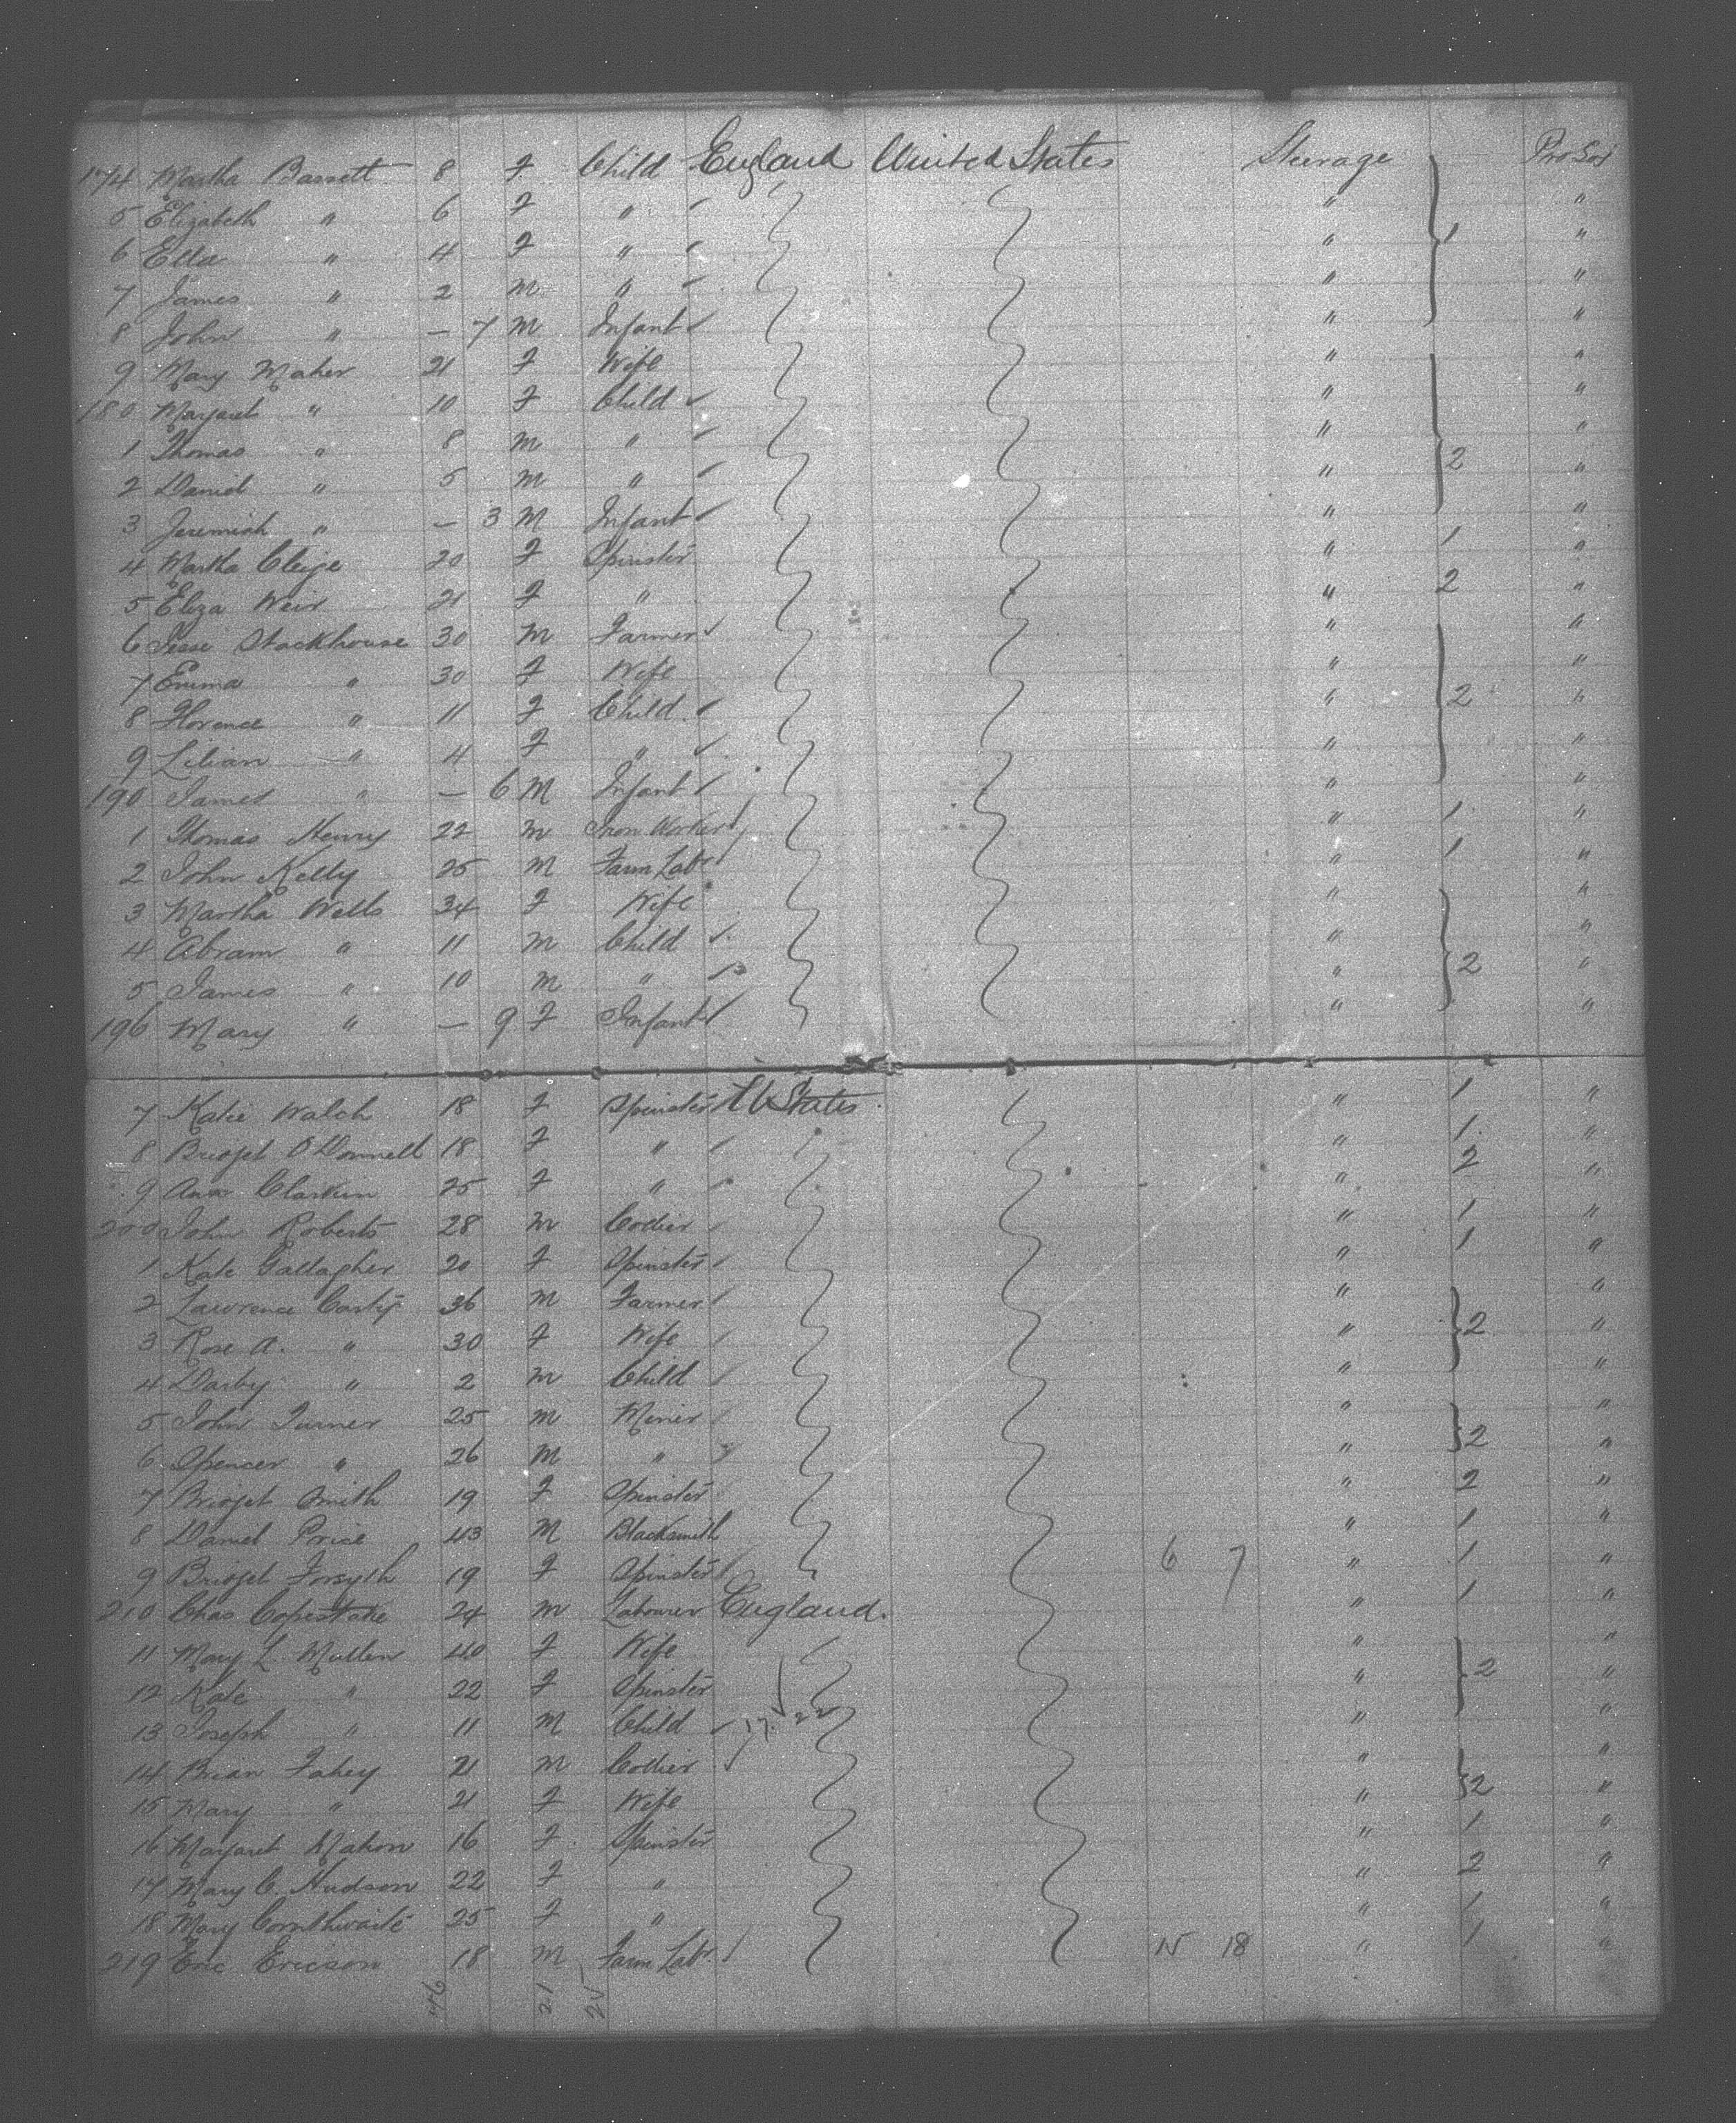 174 Martha Bassett 8 F Child England United States Steerage Pro Soj
5 Elizabeth " 6 F " "  "
6 Ella " 4 F " " 1 "
7 James " 2 M " " "
8 John " — 7 M Infant " "
9 Mary Maher 21 F Wife " "
180 Margaret " 10 F Child " "
1 Thomas " 8 M " " "
2 Daniel " 5 M " " 2 "
3 Jeremiah " — 3 M Infant " "
4 Martha Cleige 20 F Spinster " 1 "
5 Eliza Weir 21 F " " 2 "
6 Jesse Stackhouse 30 M Farmer " "
7 Emma " 30 F Wife " "
8 Florence " 11 F Child " 2 "
9 Lilian " 4 F " " "
190 James " — 6 M Infant " "
1 Thomas Henry 22 M Iron Worker " 1 "
2 John Kelly 25 M Farm Labr " 1 "
3 Martha Wells 34 F Wife " "
4 Abram " 11 M Child " "
5 James " 10 M " " 2 "
196 Mary " — 9 F Infant " "
7 Katie Walch 18 F Spinster U States " 1 "
8 Bridget O'Donnell 18 F " " 1 "
9 Ann Clarkin 25 F " " 2 "
200 John Roberts 28 M Collier " 1 "
1 Kate Gallagher 20 F Spinster " 1 "
2 Lawrence Casty 36 M Farmer " "
3 Rose A. " 30 F Wife " 2 "
4 Darby " 2 M Child " "
5 John Turner 25 M Miner " "
6 Spencer " 26 M " " 2 "
7 Bridget Smith 19 F Spinster " 2 "
8 Daniel Price 43 M Blacksmith " 1 "
9 Bridget Forsyth 19 F Spinster 6 7 " 1 "
210 Chas Copestake 24 M Labourer England. " 1 "
11 Mary L. Mullen 40 F Wife " "
12 Kate " 22 F Spinster " 2 "
13 Joseph " 11 M Child 17. 22 " "
14 Brian Fahey 21 M Collier " "
15 Mary " 21 F Wife " 2 "
16 Margaret Mahon 16 F Spinster " 1 "
17 Mary C. Hudson 22 F " " 2 "
18 Mary Cornthwaite 25 F " " 1 "
219 Eric Ericson 18 M Farm Labr 15 18 " 1 "
46 21 25